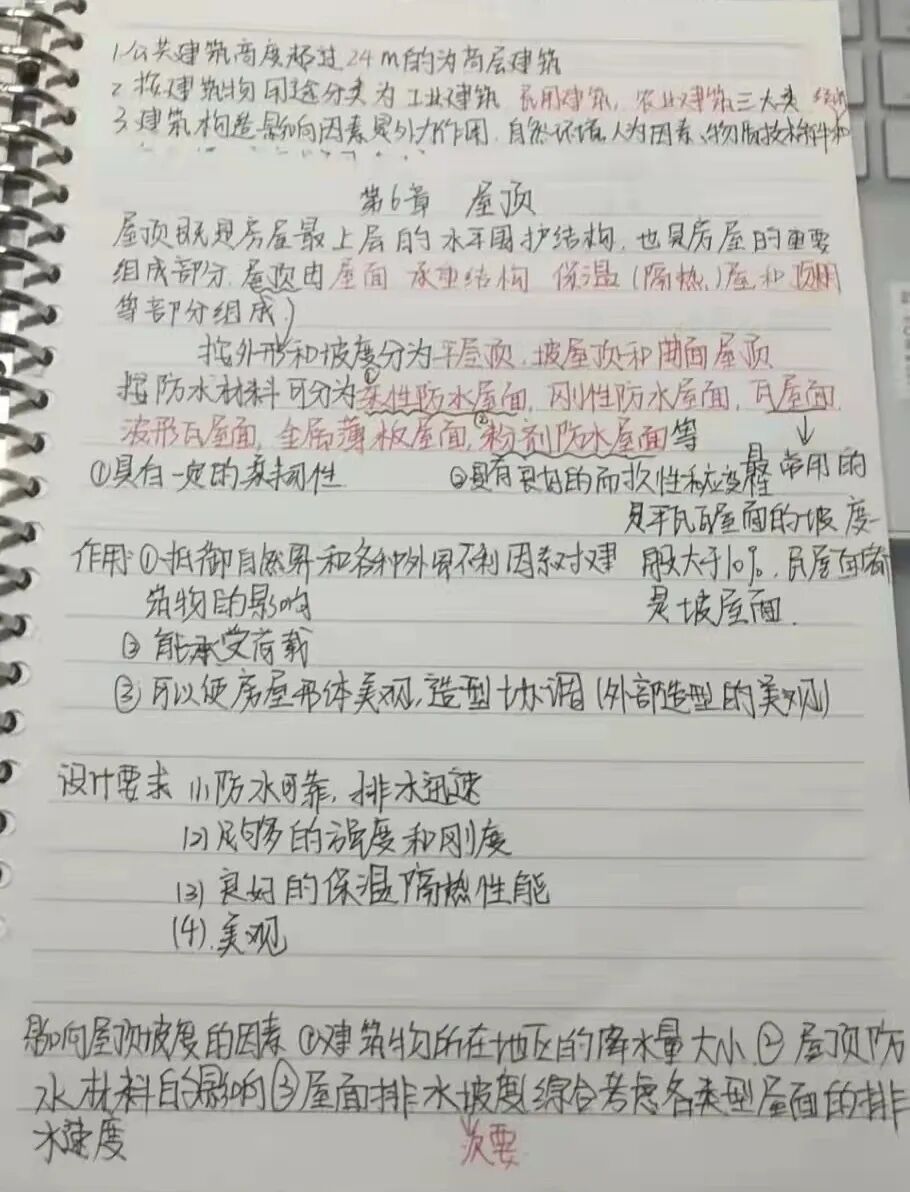 1.公共建筑高度超过24m的为高层建筑
2.按建筑物用途分类为工业建筑 民用建筑,农业建筑三大类
3.建筑构造影响因素是外力作用.自然环境、人为因素、物质技术条件和
第6章 屋顶
屋顶既是房屋最上层的水平围护结构,也是房屋的重要
组成部分.屋顶由屋面 承重结构 保温(隔热)层和顶棚
等部分组成)
按外形和坡度分为平屋顶.坡屋顶和曲面屋顶
按防水材料可分为①柔性防水屋面,刚性防水屋面,瓦屋面,
波形瓦屋面,金属薄板屋面,②粉剂防水屋面等
①具有一定的柔韧性 ②具有良好的耐久性和应变性 最常用的
是平瓦瓦屋面的坡度一
作用:①抵御自然界和各种外界不利因素对建 般大于10%,瓦屋面都
筑物的影响 是坡屋面.
② 能承受荷载
③可以使房屋形体美观,造型协调(外部造型的美观)
设计要求 (1)防水可靠,排水迅速
(2)足够的强度和刚度
(3)良好的保温隔热性能
(4).美观
影响屋顶坡度的因素①建筑物所在地区的降水量大小②屋顶防
水材料的影响③屋面排水坡度综合考虑各类型屋面的排
水速度 次要